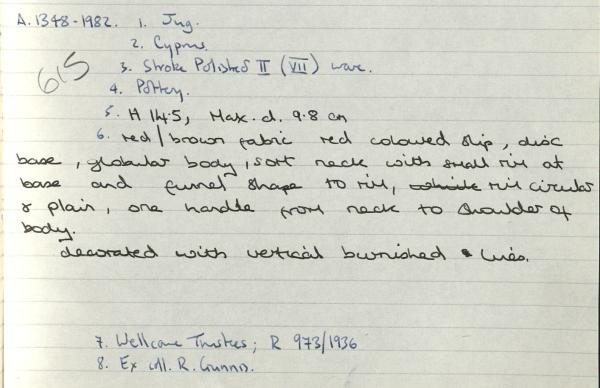 A.1348-1982. 1. Jug.
2. Cyprus.
3. Stroke Polished II (VII) ware.
615
4. Pottery.
5. H 14.5, Max. d. 9.8 cm
6. red/brown fabric red coloured slip, disc
base, globular body, sort neck with small rim at
base and funnel shape to rim, rim circular
& plain, one handle from neck to shoulder of
body.
decorated with vertical burnished lines.
7. Wellcome Trustees; R 973/1936
8. Ex coll. R. Gunnis.